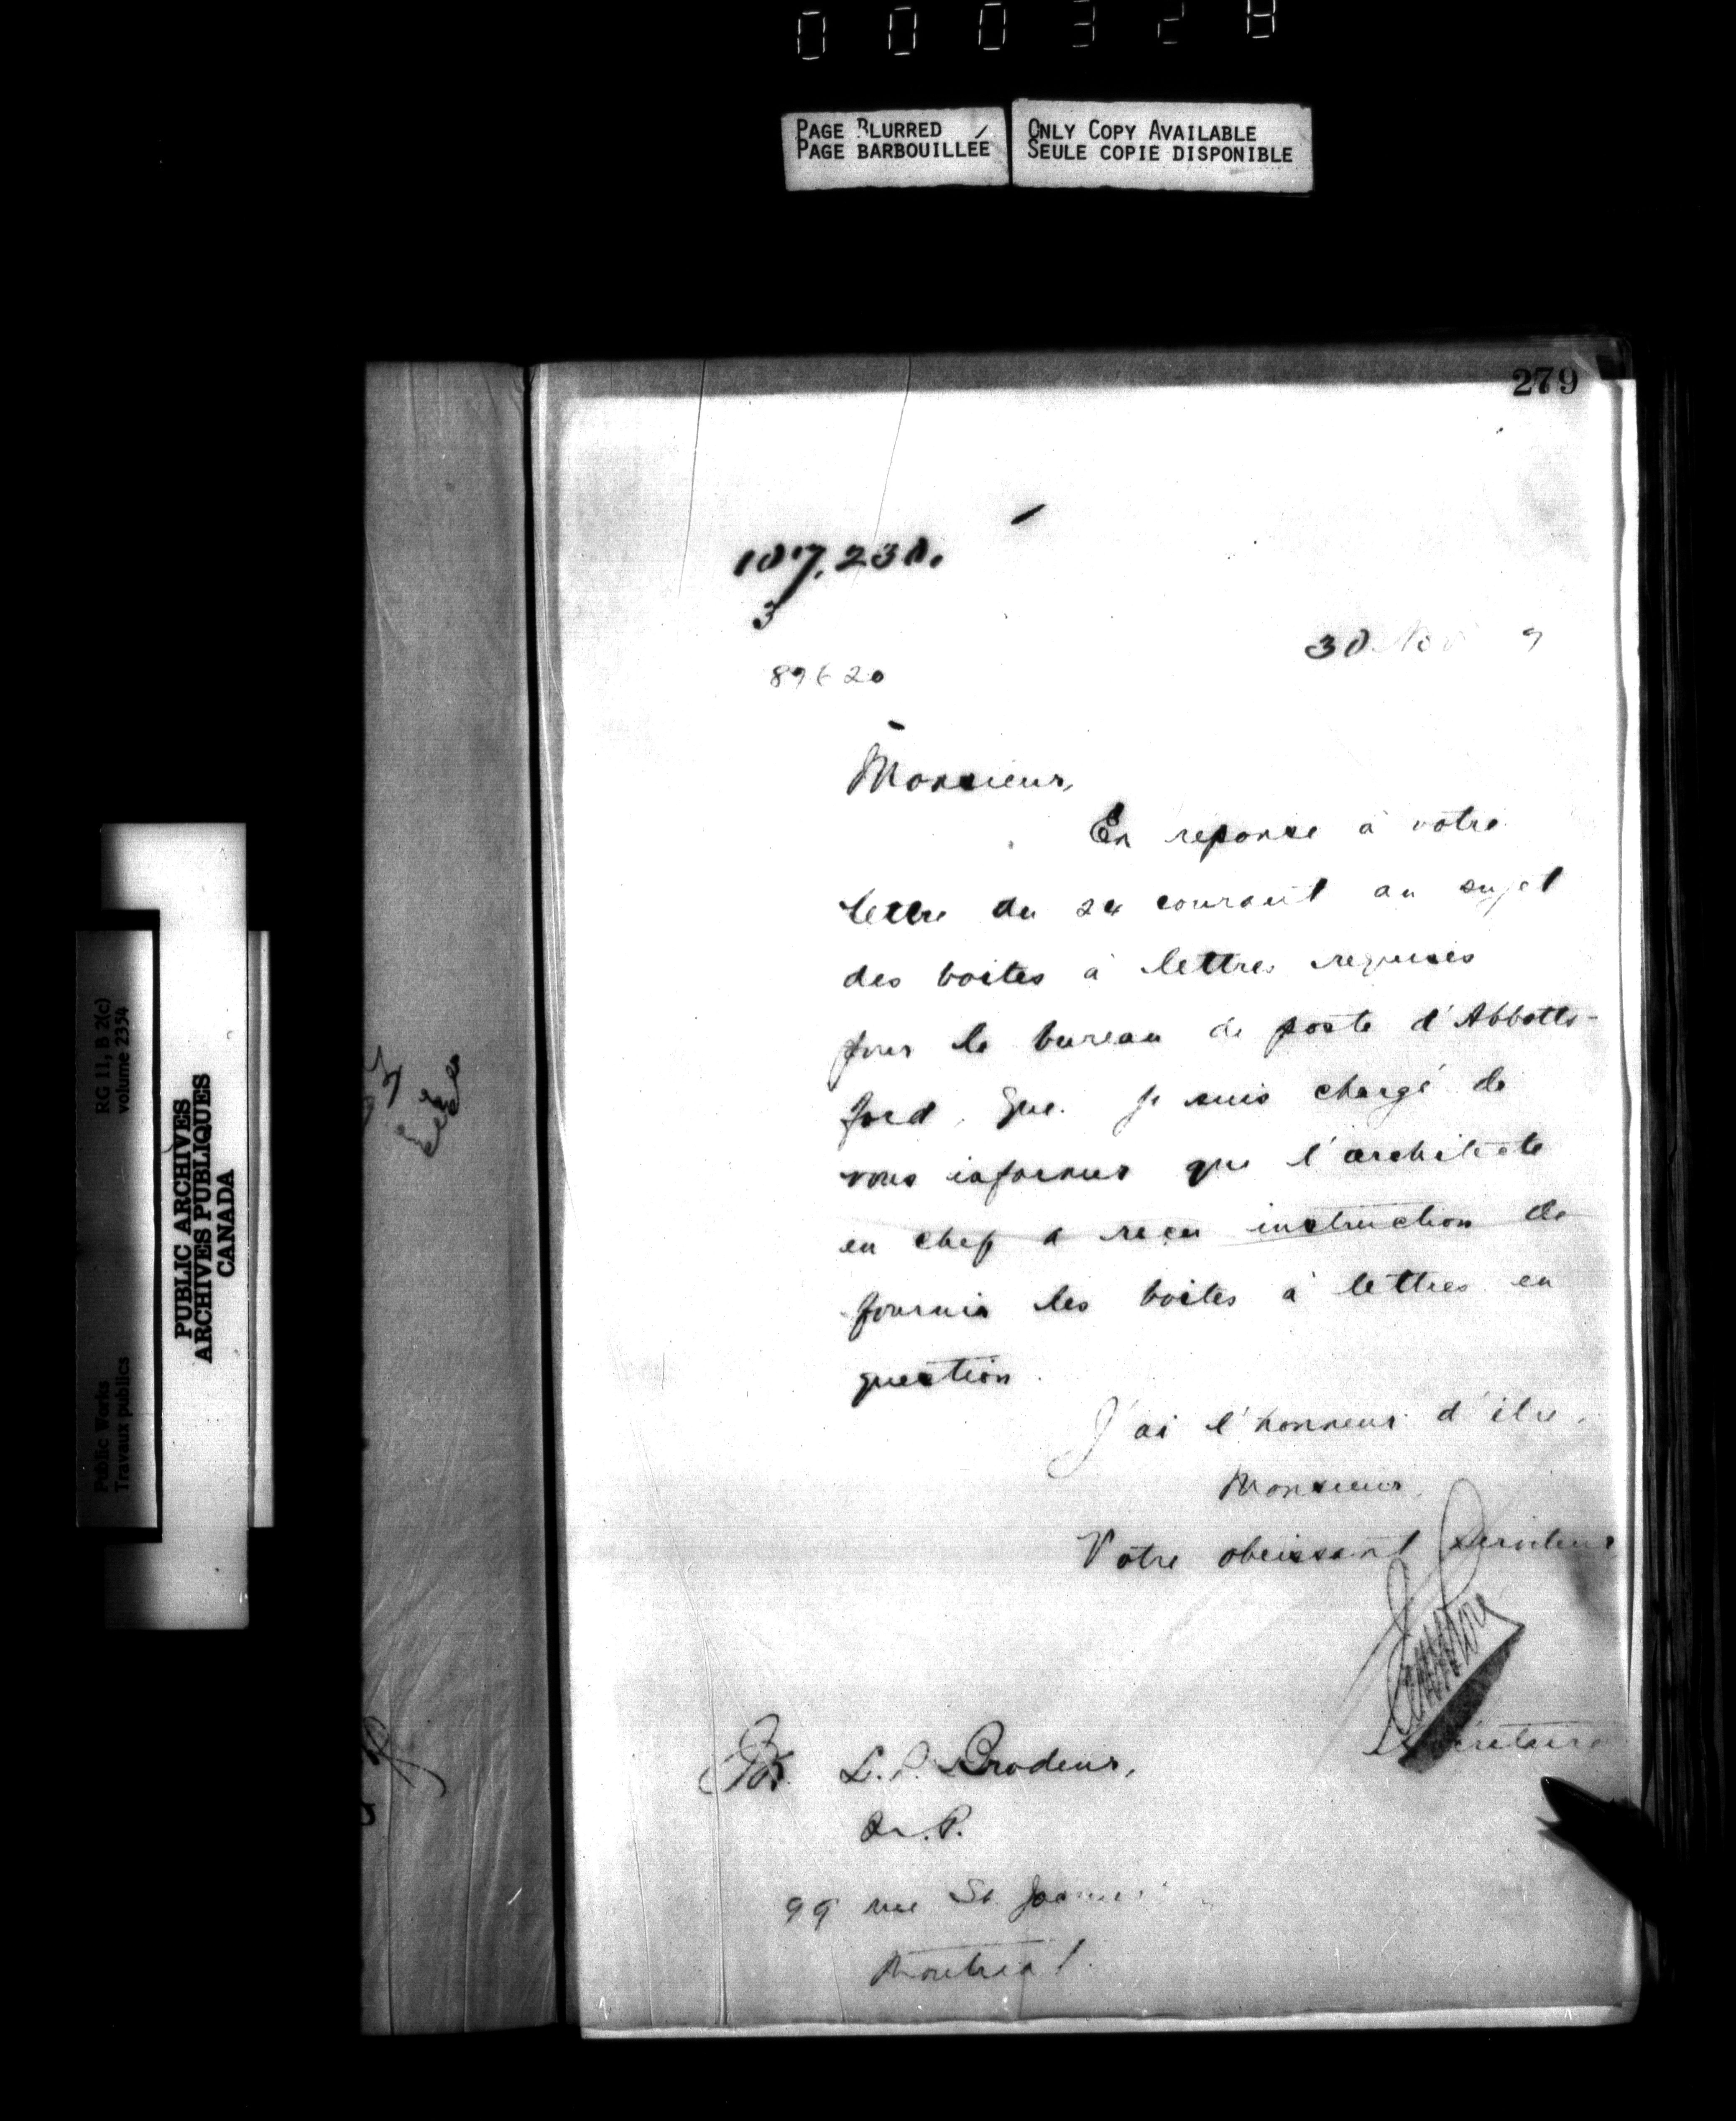 000328
PAGE BLURRED
PAGE BARBOUILLÉE
ONLY COPY AVAILABLE
SEULE COPIE DISPONIBLE
279
107.230.
3
30 Nov 9
89620
Monsieur,
En reponse à votre
lettre du 24 courant au sujet
des boites à lettres requises
pour le bureau de poste d'Abbotts-
ford, Que. je suis chargé de
vous informer que l'architecte
en chef a reçu instruction de
fournir les boites à lettres en
question.
J'ai l'honneur d'être,
Monsieur,
Votre obeissant serviteur
Secrétaire
L. P. Brodeur,
M.P.
99 rue St. Jacques
Montréal.
RG 11, B 2(c)
volume 2354
Public Works
Travaux publics
PUBLIC ARCHIVES
ARCHIVES PUBLIQUES
CANADA